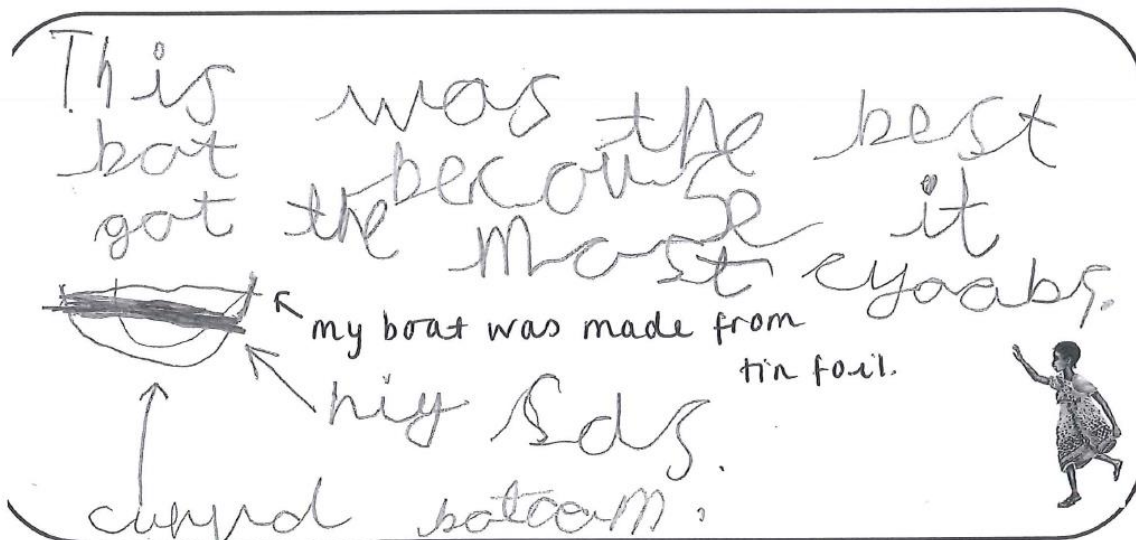 This was the best
bot becouse it
got the most cyoobs.
my boat was made from
tin foil.
hiy Sds.
cuyyd botoom.